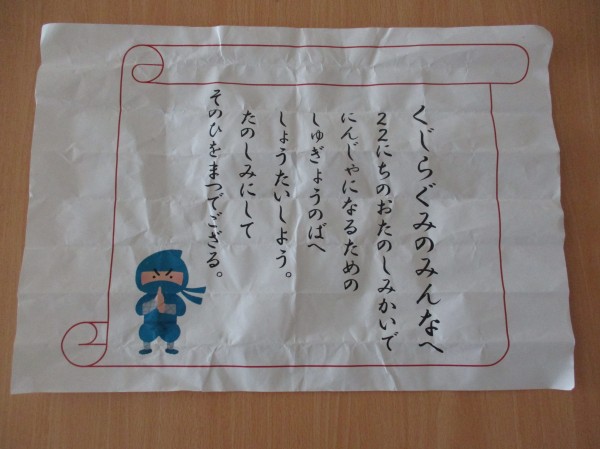 くじらぐみのみんなへ
22にちのおたのしみかいで
にんじゃになるための
しゅぎょうのばへ
しょうたいしよう。
たのしみにして
そのひをまつでござる。